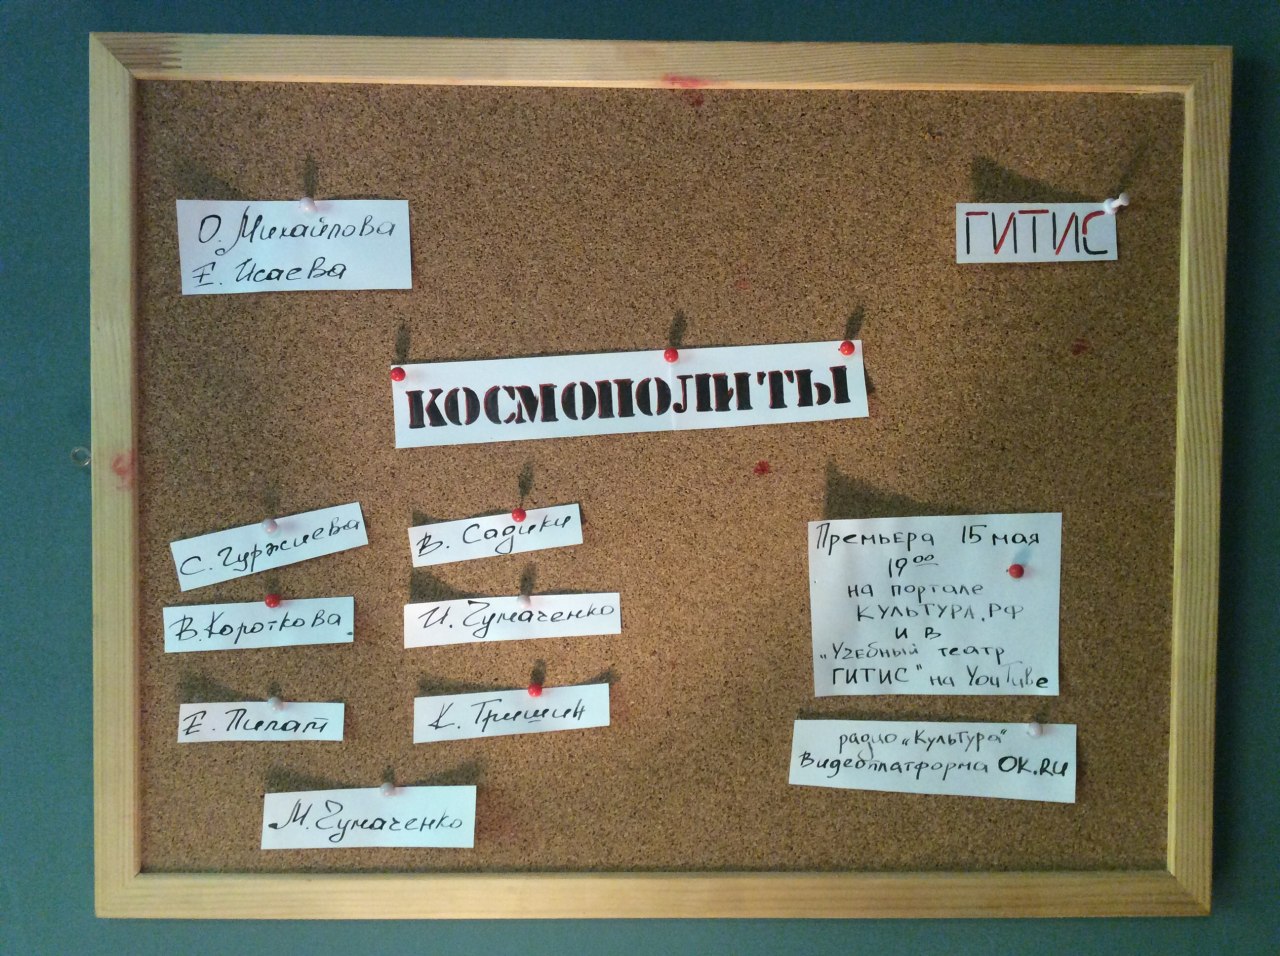 О. Михайлова
Е. Исаева
ГИТИС
КОСМОПОЛИТЫ
С. Гуржиева
В. Короткова
Е. Пилат
М. Чумаченко
В. Садики
И. Чумаченко
К. Тришин
Премьера 15 мая
19⁰⁰
на портале
КУЛЬТУРА.РФ
и в
„Учебный театр
ГИТИС" на YouTube
радио „Культура"
Видеоплатформа OK.RU